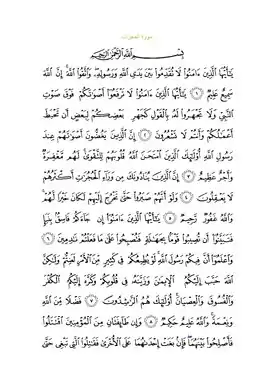 سورة الحجرات
بِسْمِ ٱللَّهِ ٱلرَّحْمَٰنِ ٱلرَّحِيمِ
يَٰٓأَيُّهَا ٱلَّذِينَ ءَامَنُوا۟ لَا تُقَدِّمُوا۟ بَيْنَ يَدَىِ ٱللَّهِ وَرَسُولِهِۦ وَٱتَّقُوا۟ ٱللَّهَ إِنَّ ٱللَّهَ
سَمِيعٌ عَلِيمٌ ١ يَٰٓأَيُّهَا ٱلَّذِينَ ءَامَنُوا۟ لَا تَرْفَعُوٓا۟ أَصْوَٰتَكُمْ فَوْقَ صَوْتِ
ٱلنَّبِىِّ وَلَا تَجْهَرُوا۟ لَهُۥ بِٱلْقَوْلِ كَجَهْرِ بَعْضِكُمْ لِبَعْضٍ أَن تَحْبَطَ
أَعْمَٰلُكُمْ وَأَنتُمْ لَا تَشْعُرُونَ ٢ إِنَّ ٱلَّذِينَ يَغُضُّونَ أَصْوَٰتَهُمْ عِندَ
رَسُولِ ٱللَّهِ أُو۟لَٰٓئِكَ ٱلَّذِينَ ٱمْتَحَنَ ٱللَّهُ قُلُوبَهُمْ لِلتَّقْوَىٰ لَهُم مَّغْفِرَةٌ
وَأَجْرٌ عَظِيمٌ ٣ إِنَّ ٱلَّذِينَ يُنَادُونَكَ مِن وَرَآءِ ٱلْحُجُرَٰتِ أَكْثَرُهُمْ
لَا يَعْقِلُونَ ٤ وَلَوْ أَنَّهُمْ صَبَرُوا۟ حَتَّىٰ تَخْرُجَ إِلَيْهِمْ لَكَانَ خَيْرًا لَّهُمْ
وَٱللَّهُ غَفُورٌ رَّحِيمٌ ٥ يَٰٓأَيُّهَا ٱلَّذِينَ ءَامَنُوٓا۟ إِن جَآءَكُمْ فَاسِقٌۢ بِنَبَإٍ
فَتَبَيَّنُوٓا۟ أَن تُصِيبُوا۟ قَوْمًۢا بِجَهَٰلَةٍ فَتُصْبِحُوا۟ عَلَىٰ مَا فَعَلْتُمْ نَٰدِمِينَ ٦
وَٱعْلَمُوٓا۟ أَنَّ فِيكُمْ رَسُولَ ٱللَّهِ لَوْ يُطِيعُكُمْ فِى كَثِيرٍ مِّنَ ٱلْأَمْرِ لَعَنِتُّمْ وَلَٰكِنَّ
ٱللَّهَ حَبَّبَ إِلَيْكُمُ ٱلْإِيمَٰنَ وَزَيَّنَهُۥ فِى قُلُوبِكُمْ وَكَرَّهَ إِلَيْكُمُ ٱلْكُفْرَ
وَٱلْفُسُوقَ وَٱلْعِصْيَانَ أُو۟لَٰٓئِكَ هُمُ ٱلرَّٰشِدُونَ ٧ فَضْلًا مِّنَ ٱللَّهِ
وَنِعْمَةً وَٱللَّهُ عَلِيمٌ حَكِيمٌ ٨ وَإِن طَآئِفَتَانِ مِنَ ٱلْمُؤْمِنِينَ ٱقْتَتَلُوا۟
فَأَصْلِحُوا۟ بَيْنَهُمَا فَإِنۢ بَغَتْ إِحْدَىٰهُمَا عَلَى ٱلْأُخْرَىٰ فَقَٰتِلُوا۟ ٱلَّتِى تَبْغِى حَتَّىٰ